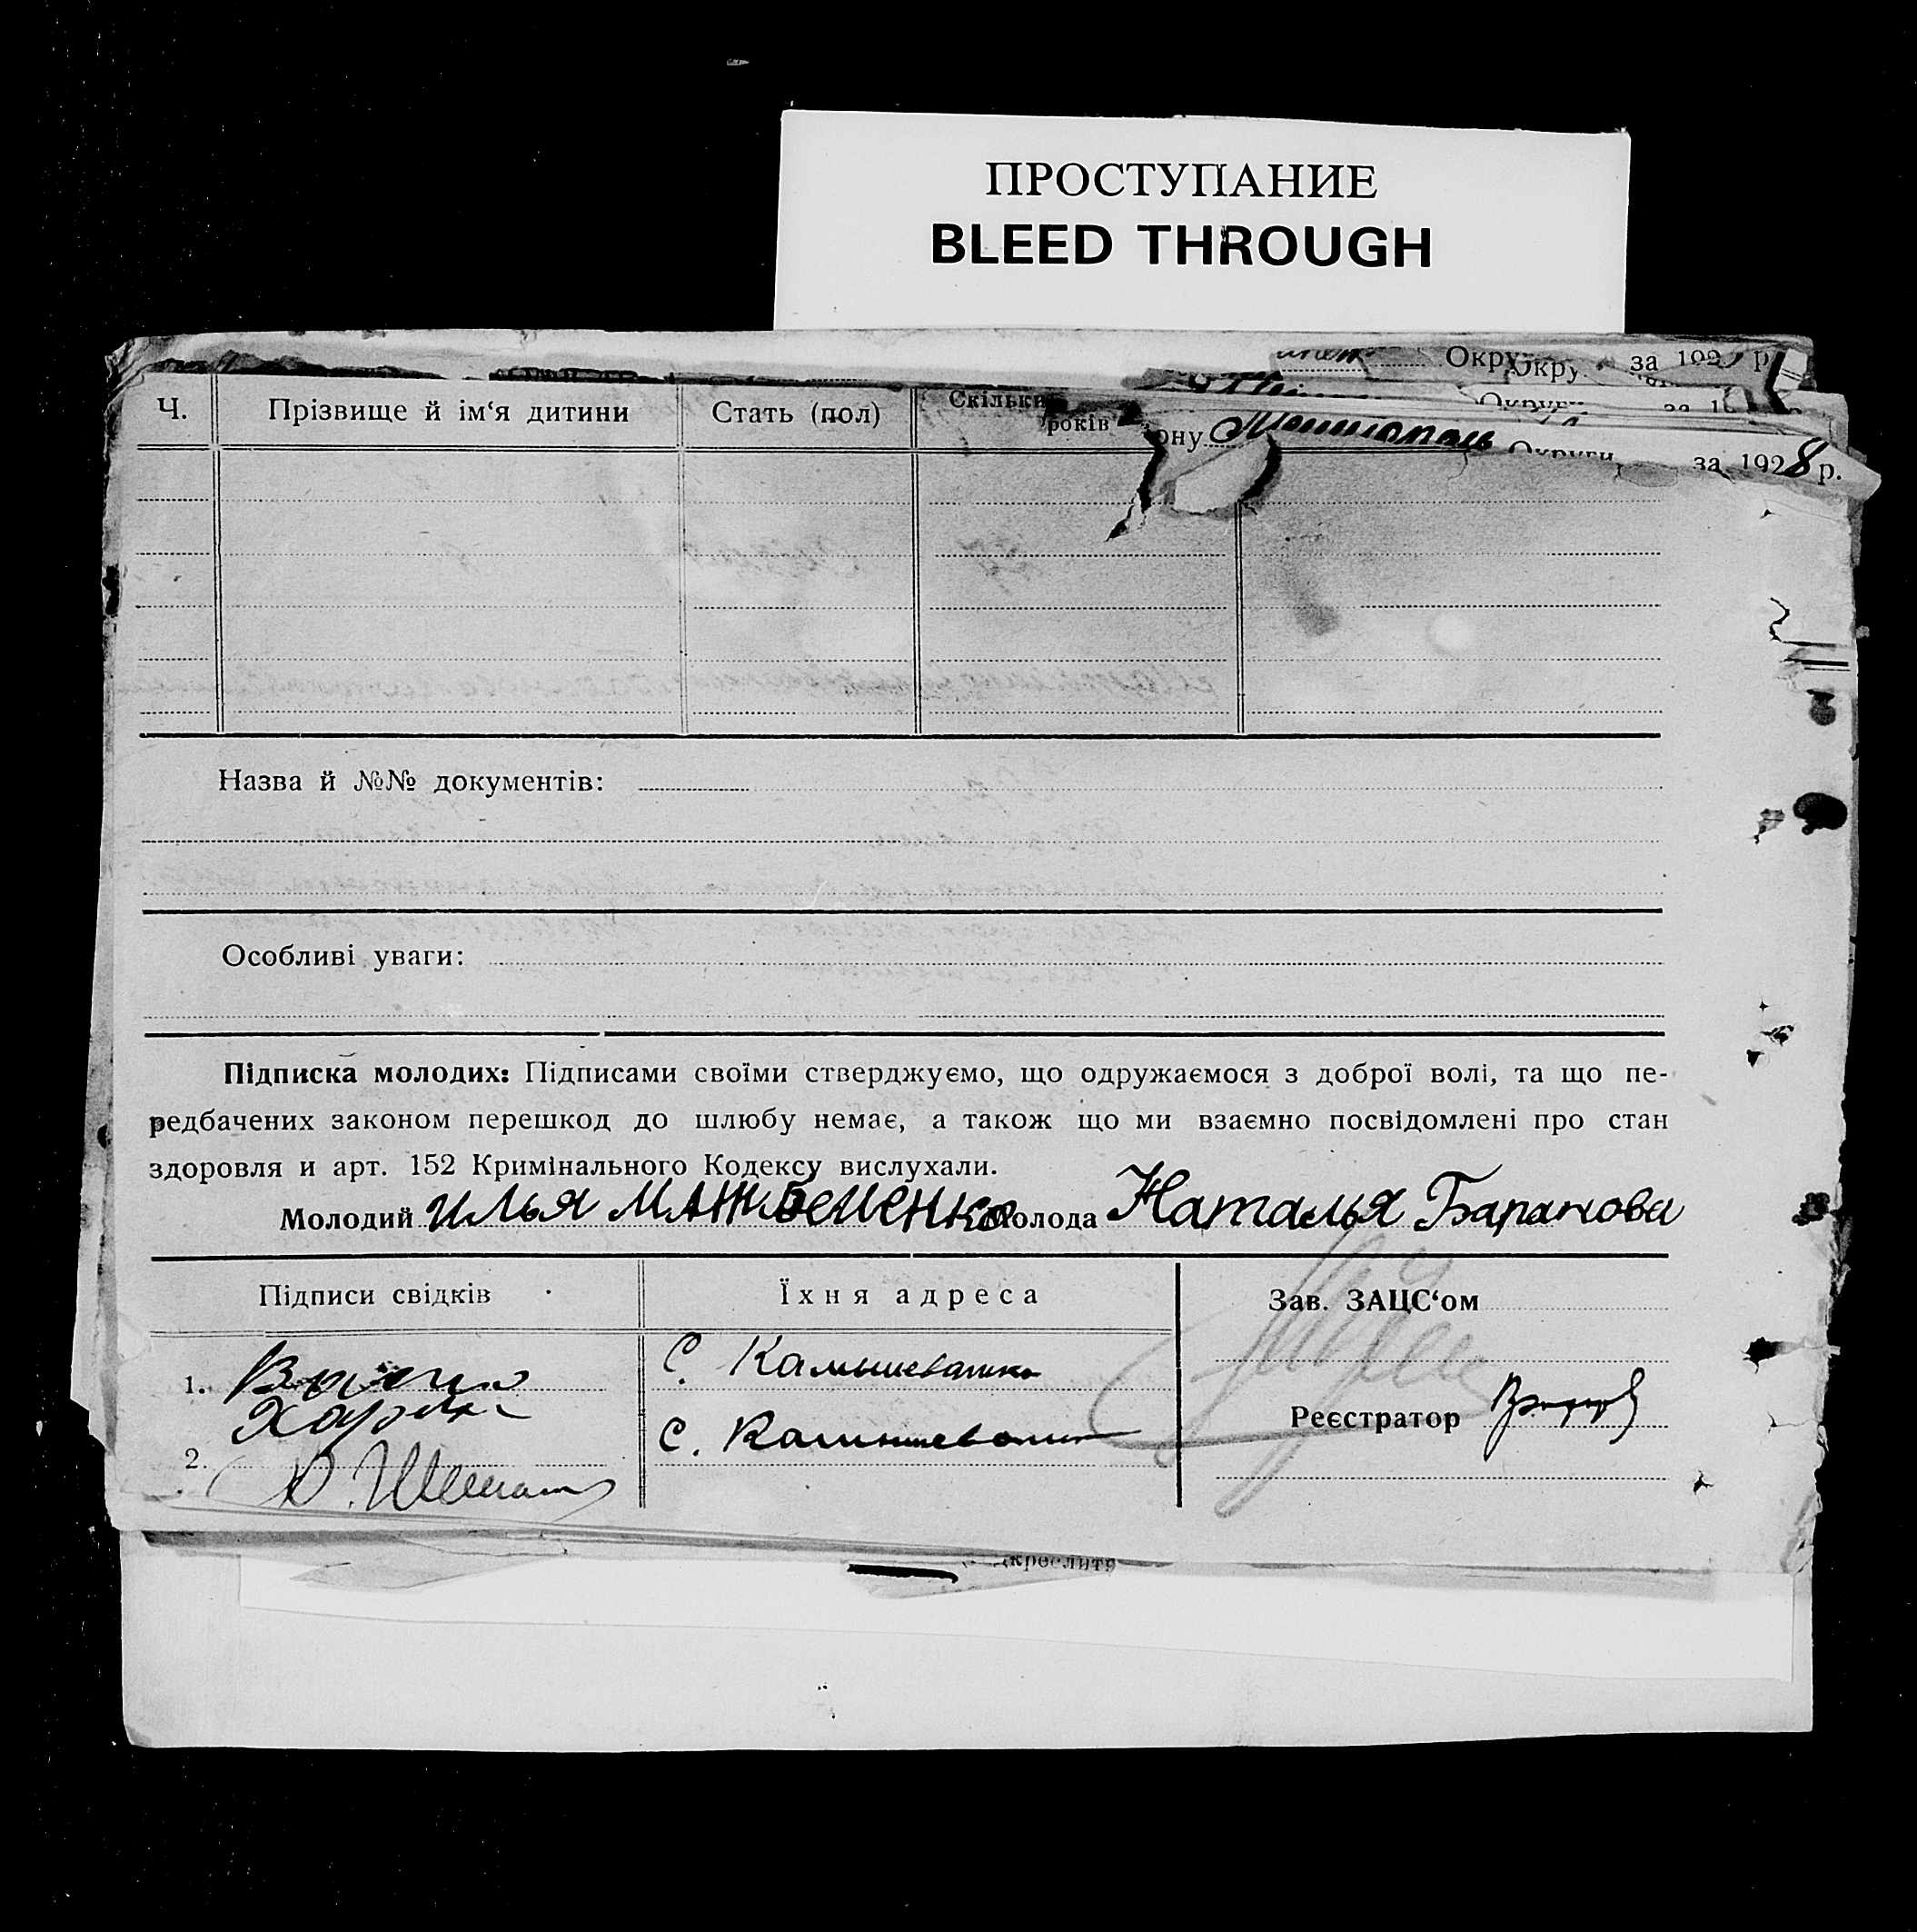 ПРОСТУПАНИЕ
BLEED THROUGH
Округ за 192 р
Округ
за 1
ону Округи за 1928 р.
Ч. Прізвище й ім‘я дитини Стать (пол) Скільки років
Назва й №№ документів:
Особливі уваги:
Підписка молодих: Підписами своїми стверджуємо, що одружаємося з доброї волі, та що пе-
редбачених законом перешкод до шлюбу немає, а також що ми взаємно посвідомлені про стан
здоровля и арт. 152 Кримінального Кодексу вислухали.
Молодий Илья Молода Наталья Баранова
Підписи свідків Їхня адреса Зав. ЗАЦС‘ом
1. С. Камышеватка
Реєстратор
2. С. Камышеватка
креслити